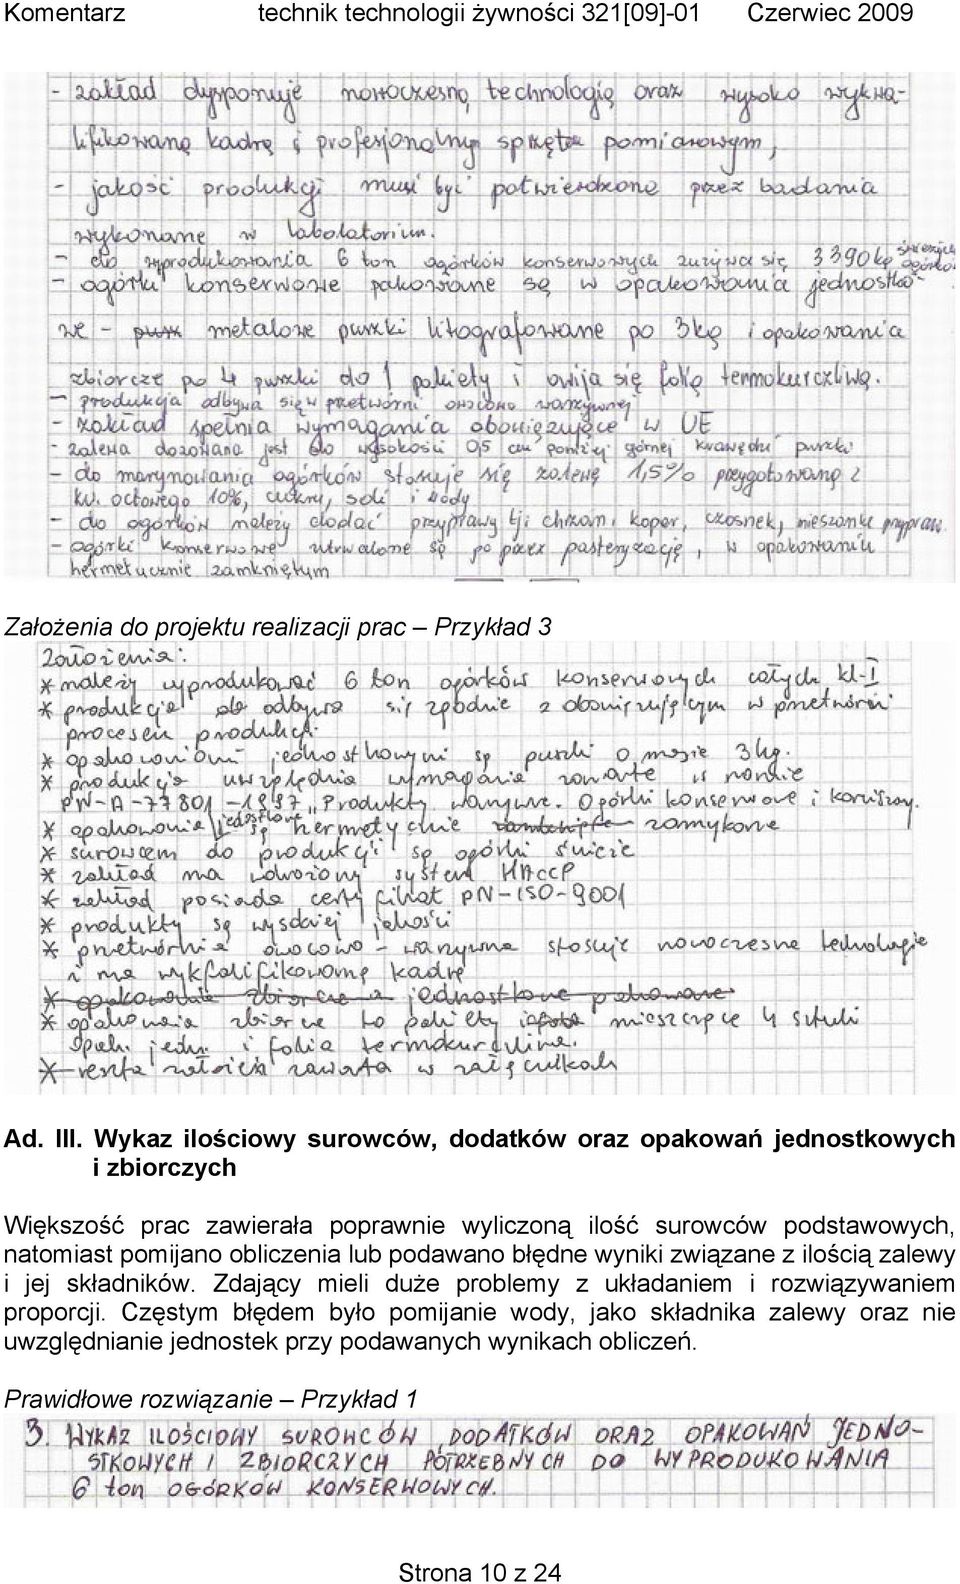 Komentarz technik technologii żywności 321[09]-01 Czerwiec 2009
- zakład dysponuje nowoczesną technologią oraz wysoko wykwa-
lifikowaną kadrę i profesjonalnym sprzęte pomiarowym,
- jakość produkcji musi być potwierdzone przez badania
wykonane w labolatorium.
- do wyprodukowania 6 ton ogórków konserwowych zużywa się 3390kg świeżych ogórków
- ogórki konserwowe pakowane są w opakowania jednostko-
we - puszk metalowe puszki litografowane po 3kg i opakowania
zbiorcze po 4 puszki do 1 pakiety i owija się folią termokurczliwą.
- produkcja odbywa się w przetwórni owocowo warzywnej
- zakład spełnia wymagania obowiązujące w UE
- zalewa dozowana jest do wysokości 0,5 cm poniżej górnej krawędzi puszki
- do marynowania ogórków stosuje się zalewę 1,5% przygotowaną z
kw. octowego 10%, cukru, soli i wody
- do ogórków należy dodać przyprawy tj. chrzan, koper, czosnek, mieszankę przypraw.
- ogórki konserwowe utrwalone są po przez pasteryzację, w opakowaniu
hermetycznie zamkniętym
Założenia do projektu realizacji prac – Przykład 3
Założenia:
* należy wyprodukować 6 ton ogórków konserwowych całych kl-I
* produkcja odbywa się zgodnie z obowiązującym w przetwórni
procesem produkcji.
* opakowaniami jednostkowymi są puszki o masie 3kg.
* produkcja uwzględnia wymagania zawarte w normie
PN-A-77801-1997 "Produkty warzywne. Ogórki konserwowe i korniszony.
* opakowania jednostkowe są hermetycznie zamknięte zamykane
* surowcem do produkcji są ogórki świeże
* zakład ma wdrożony system HACCP
* zakład posiada certyfikat PN-ISO-9001
* produkty są wysokiej jakości
* przetwórnia owocowo - warzywna stosuje nowoczesne technologie
i ma wykfalifikowaną kadrę
* opakowanie zbiorcze a jednostkowe pakowane
* opakowania zbiorcze to pakiety mieszczące 4 sztuki
opak. jedn. i folia termokurczliwa.
* reszta założeń zawarta w załącznikach
Ad. III. Wykaz ilościowy surowców, dodatków oraz opakowań jednostkowych
i zbiorczych
Większość prac zawierała poprawnie wyliczoną ilość surowców podstawowych,
natomiast pomijano obliczenia lub podawano błędne wyniki związane z ilością zalewy
i jej składników. Zdający mieli duże problemy z układaniem i rozwiązywaniem
proporcji. Częstym błędem było pomijanie wody, jako składnika zalewy oraz nie
uwzględnianie jednostek przy podawanych wynikach obliczeń.
Prawidłowe rozwiązanie – Przykład 1
3. WYKAZ ILOŚCIOWY SUROWCÓW, DODATKÓW ORAZ OPAKOWAŃ JEDNO-
STKOWYCH I ZBIORCZYCH POTRZEBNYCH DO WYPRODUKOWANIA
6 ton OGÓRKÓW KONSERWOWYCH.
Strona 10 z 24